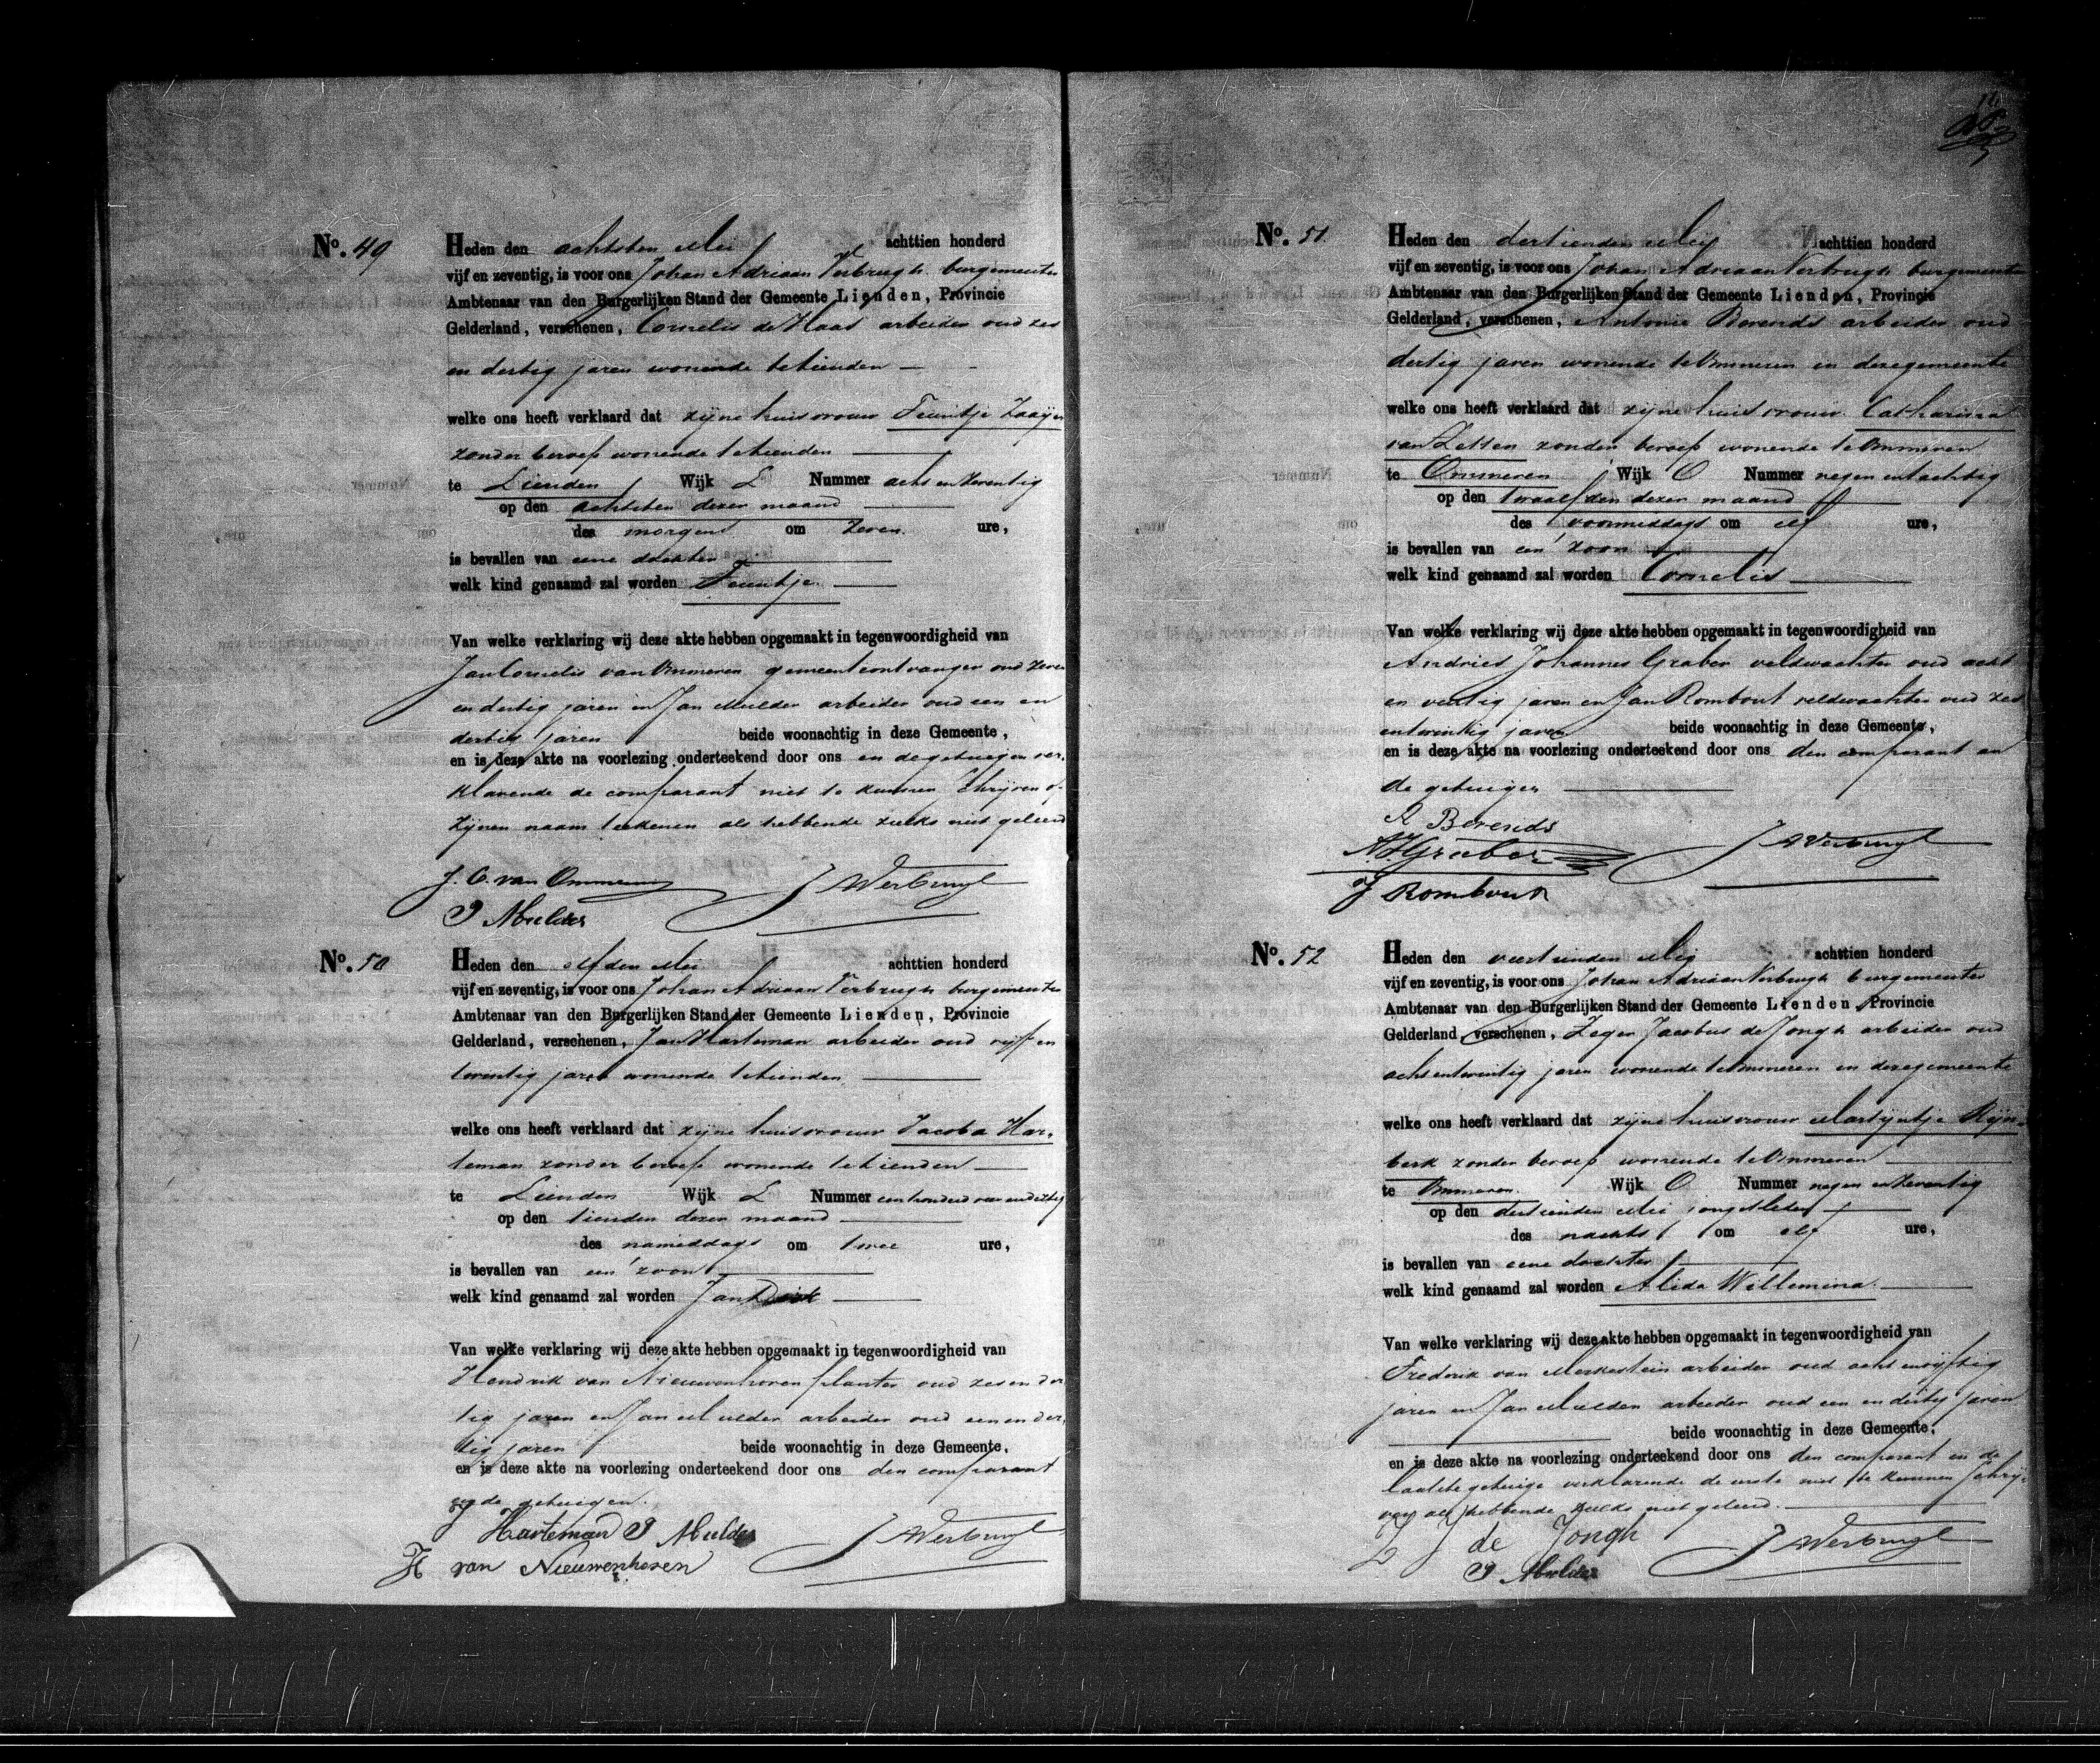 No. 49
Heden den achtsten Mei achttien honderd
vijf en zeventig, is voor ons Johan Adriaan Verbrugh burgemeester
Ambtenaar van den Burgerlijken Stand der Gemeente Lienden, Provincie
Gelderland, verschenen, Cornelis de Haas arbeider oud zes
en dertig jaren wonende te Lienden
welke ons heeft verklaard dat zijne huisvrouw Teuntje Zaaijer
zonder beroep wonende te Lienden
te Lienden Wijk L Nummer acht en zeventig
op den achtsten dezer maand
des morgens om zeven ure,
is bevallen van eene dochter
welk kind genaamd zal worden Teuntje
Van welke verklaring wij deze akte hebben opgemaakt in tegenwoordigheid van
Jan Cornelis van Ommeren gemeenteontvanger oud zeven
en dertig jaren en Jan Mulder arbeider oud een en
dertig jaren beide woonachtig in deze Gemeente,
en is deze akte na voorlezing onderteekend door ons en de getuigen ver-
klarende de comparant niet te kunnen schrijven of
zijnen naam teekenen als hebbende zulks niet geleerd
J. C. van Ommeren JAVerbrugh
J Mulder
No. 50
Heden den elfden Mei achttien honderd
vijf en zeventig, is voor ons Johan Adriaan Verbrugh burgemeester
Ambtenaar van den Burgerlijken Stand der Gemeente Lienden, Provincie
Gelderland, verschenen, Jan Harteman arbeider oud vijf en
twintig jaren wonende te Lienden
welke ons heeft verklaard dat zijne huisvrouw Jacoba Har-
teman zonder beroep wonende te Lienden
te Lienden Wijk L Nummer een honderd vier en dertig
op den tienden dezer maand
des nameddags om twee ure,
is bevallen van een zoon
welk kind genaamd zal worden Jan Dirk
Van welke verklaring wij deze akte hebben opgemaakt in tegenwoordigheid van
Hendrik van Nieuwenhoven planter oud zes en der
tig jaren en Jan Mulder arbeider oud een en der-
tig jaren beide woonachtig in deze Gemeente,
en is deze akte na voorlezing onderteekend door ons den comparant
en de getuigen.
J Harteman J Mulder JAVerbrugh
H van Nieuwenhoven
No. 51
Heden den dertienden Mei achttien honderd
vijf en zeventig, is voor ons Johan Adriaan Verbrugh burgemeester
Ambtenaar van den Burgerlijken Stand der Gemeente Lienden, Provincie
Gelderland, verschenen, Antonie Berends arbeider oud
dertig jaren wonende te Ommeren in deze gemeente
welke ons heeft verklaard dat zijne huisvrouw Catharina
van Zetten zonder beroep wonende te Ommeren
te Ommeren Wijk O Nummer negen en tachtig
op den twaalfden dezer maand
des voormiddags om elf ure,
is bevallen van een zoon
welk kind genaamd zal worden Cornelis
Van welke verklaring wij deze akte hebben opgemaakt in tegenwoordigheid van
Andries Johannes Graber veldwachter oud acht
en veertig jaren en Jan Rombout veldwachter oud zes
en twintig jaren beide woonachtig in deze Gemeente,
en is deze akte na voorlezing onderteekend door ons den comparant en
de getuigen
A Berends
A.J. Graber JAVerbrugh
J Rombout
No. 52
Heden den veertienden Mei achttien honderd
vijf en zeventig, is voor ons Johan Adriaan Verbrugh burgemeester
Ambtenaar van den Burgerlijken Stand der Gemeente Lienden, Provincie
Gelderland, verschenen, Zeger Jacobus de Jongh arbeider oud
acht en twintig jaren wonende te Ommeren in deze gemeente
welke ons heeft verklaard dat zijne huisvrouw Martijntje Rijn-
berk zonder beroep wonende te Ommeren
te Ommeren Wijk O Nummer negen en zeventig
op den dertienden Mei jongstleden
des nachts om elf ure,
is bevallen van eene dochter
welk kind genaamd zal worden Alida Willemina
Van welke verklaring wij deze akte hebben opgemaakt in tegenwoordigheid van
Frederik van Merkestein arbeider oud acht en vijftig
jaren en Jan Mulder arbeider oud een en dertig jaren
beide woonachtig in deze Gemeente,
en is deze akte na voorlezing onderteekend door ons den comparant en de
laatste getuige verklarende de eerste niet te kunnen schrij-
ven als hebbende zulks niet geleerd.
Z J de Jongh JAVerbrugh
J Mulder